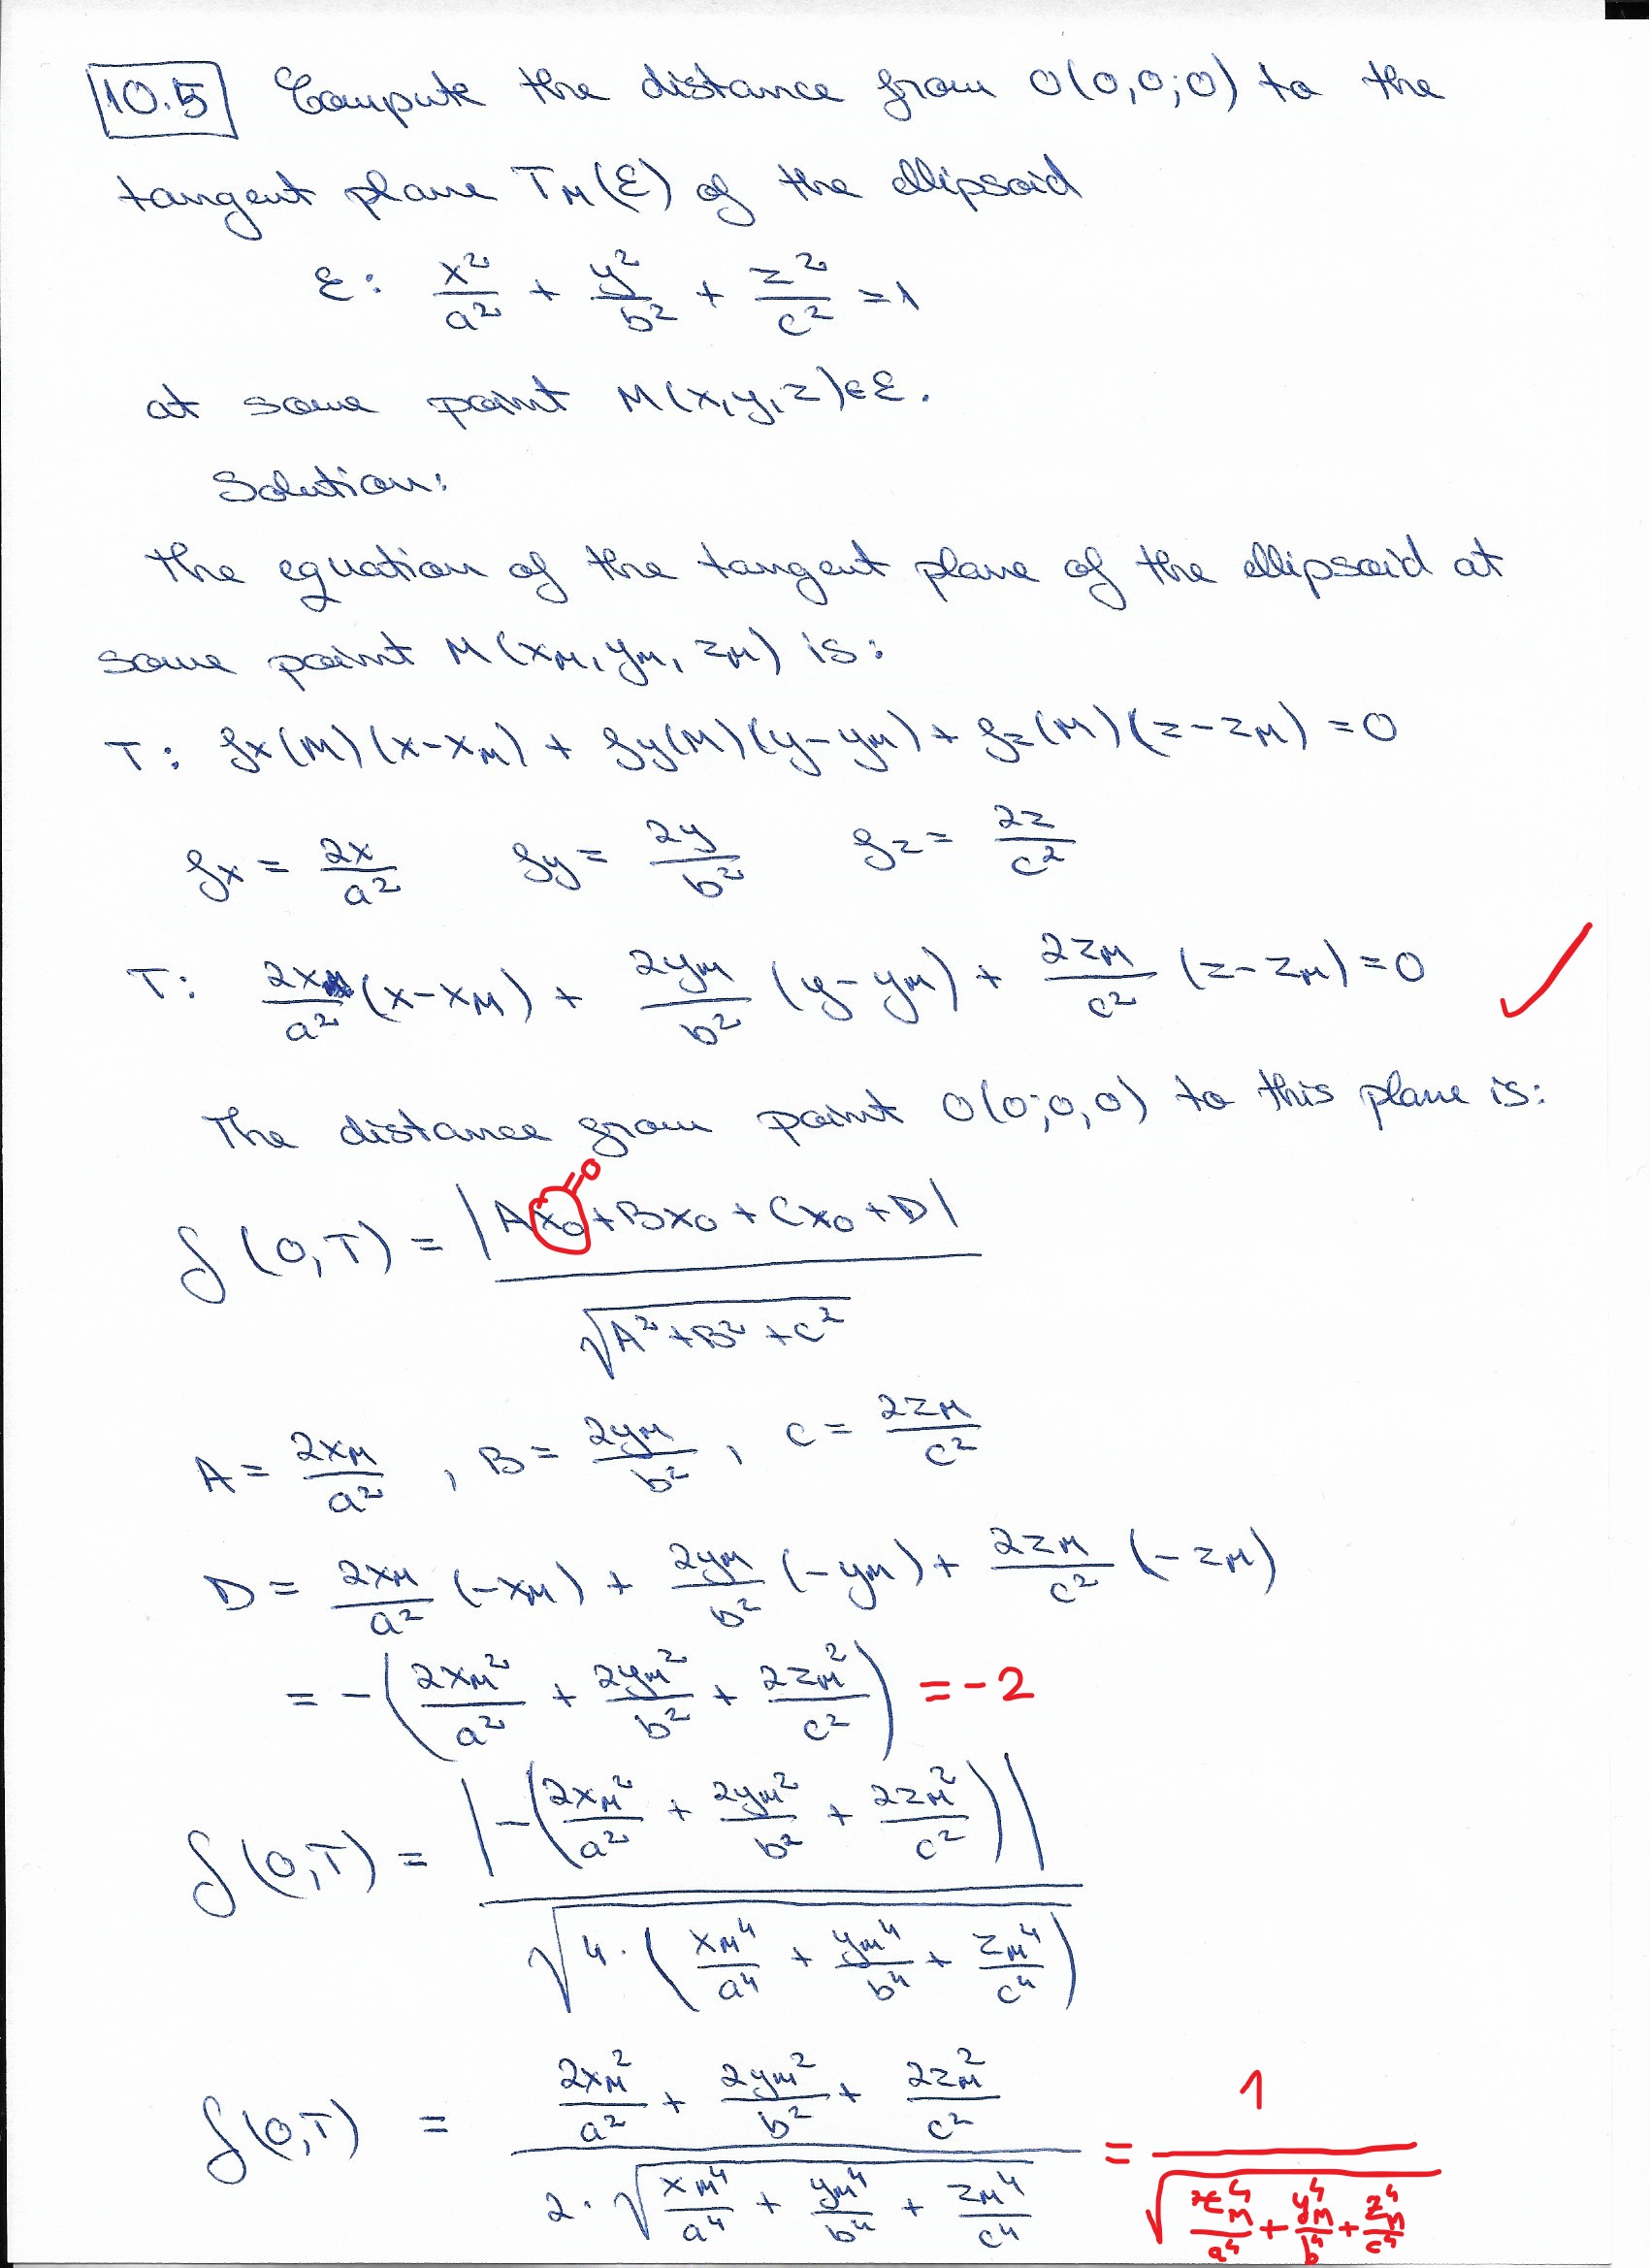 10.5 Compute the distance from O(0,0,0) to the
tangent plane T_M(ℰ) of the ellipsoid
ℰ: x²/a² + y²/b² + z²/c² = 1
at some point M(x,y,z)∈ℰ.
Solution:
The equation of the tangent plane of the ellipsoid at
some point M(x_M, y_M, z_M) is:
T: f_x(M)(x-x_M) + f_y(M)(y-y_M) + f_z(M)(z-z_M) = 0
f_x = 2x/a² f_y = 2y/b² f_z = 2z/c²
T: 2x_M/a² (x-x_M) + 2y_M/b² (y-y_M) + 2z_M/c² (z-z_M) = 0 ✓
The distance from point O(0,0,0) to this plane is:
=0
δ(O,T) = |Ax₀+Bx₀+Cx₀+D| / √(A²+B²+C²)
A = 2x_M/a², B = 2y_M/b², C = 2z_M/c²
D = 2x_M/a² (-x_M) + 2y_M/b² (-y_M) + 2z_M/c² (-z_M)
= -(2x_M²/a² + 2y_M²/b² + 2z_M²/c²) = -2
δ(O,T) = |-(2x_M²/a² + 2y_M²/b² + 2z_M²/c²)| / √(4·(x_M⁴/a⁴ + y_M⁴/b⁴ + z_M⁴/c⁴))
δ(O,T) = (2x_M²/a² + 2y_M²/b² + 2z_M²/c²) / (2·√(x_M⁴/a⁴ + y_M⁴/b⁴ + z_M⁴/c⁴)) = 1 / √(x_M⁴/a⁴ + y_M⁴/b⁴ + z_M⁴/c⁴)